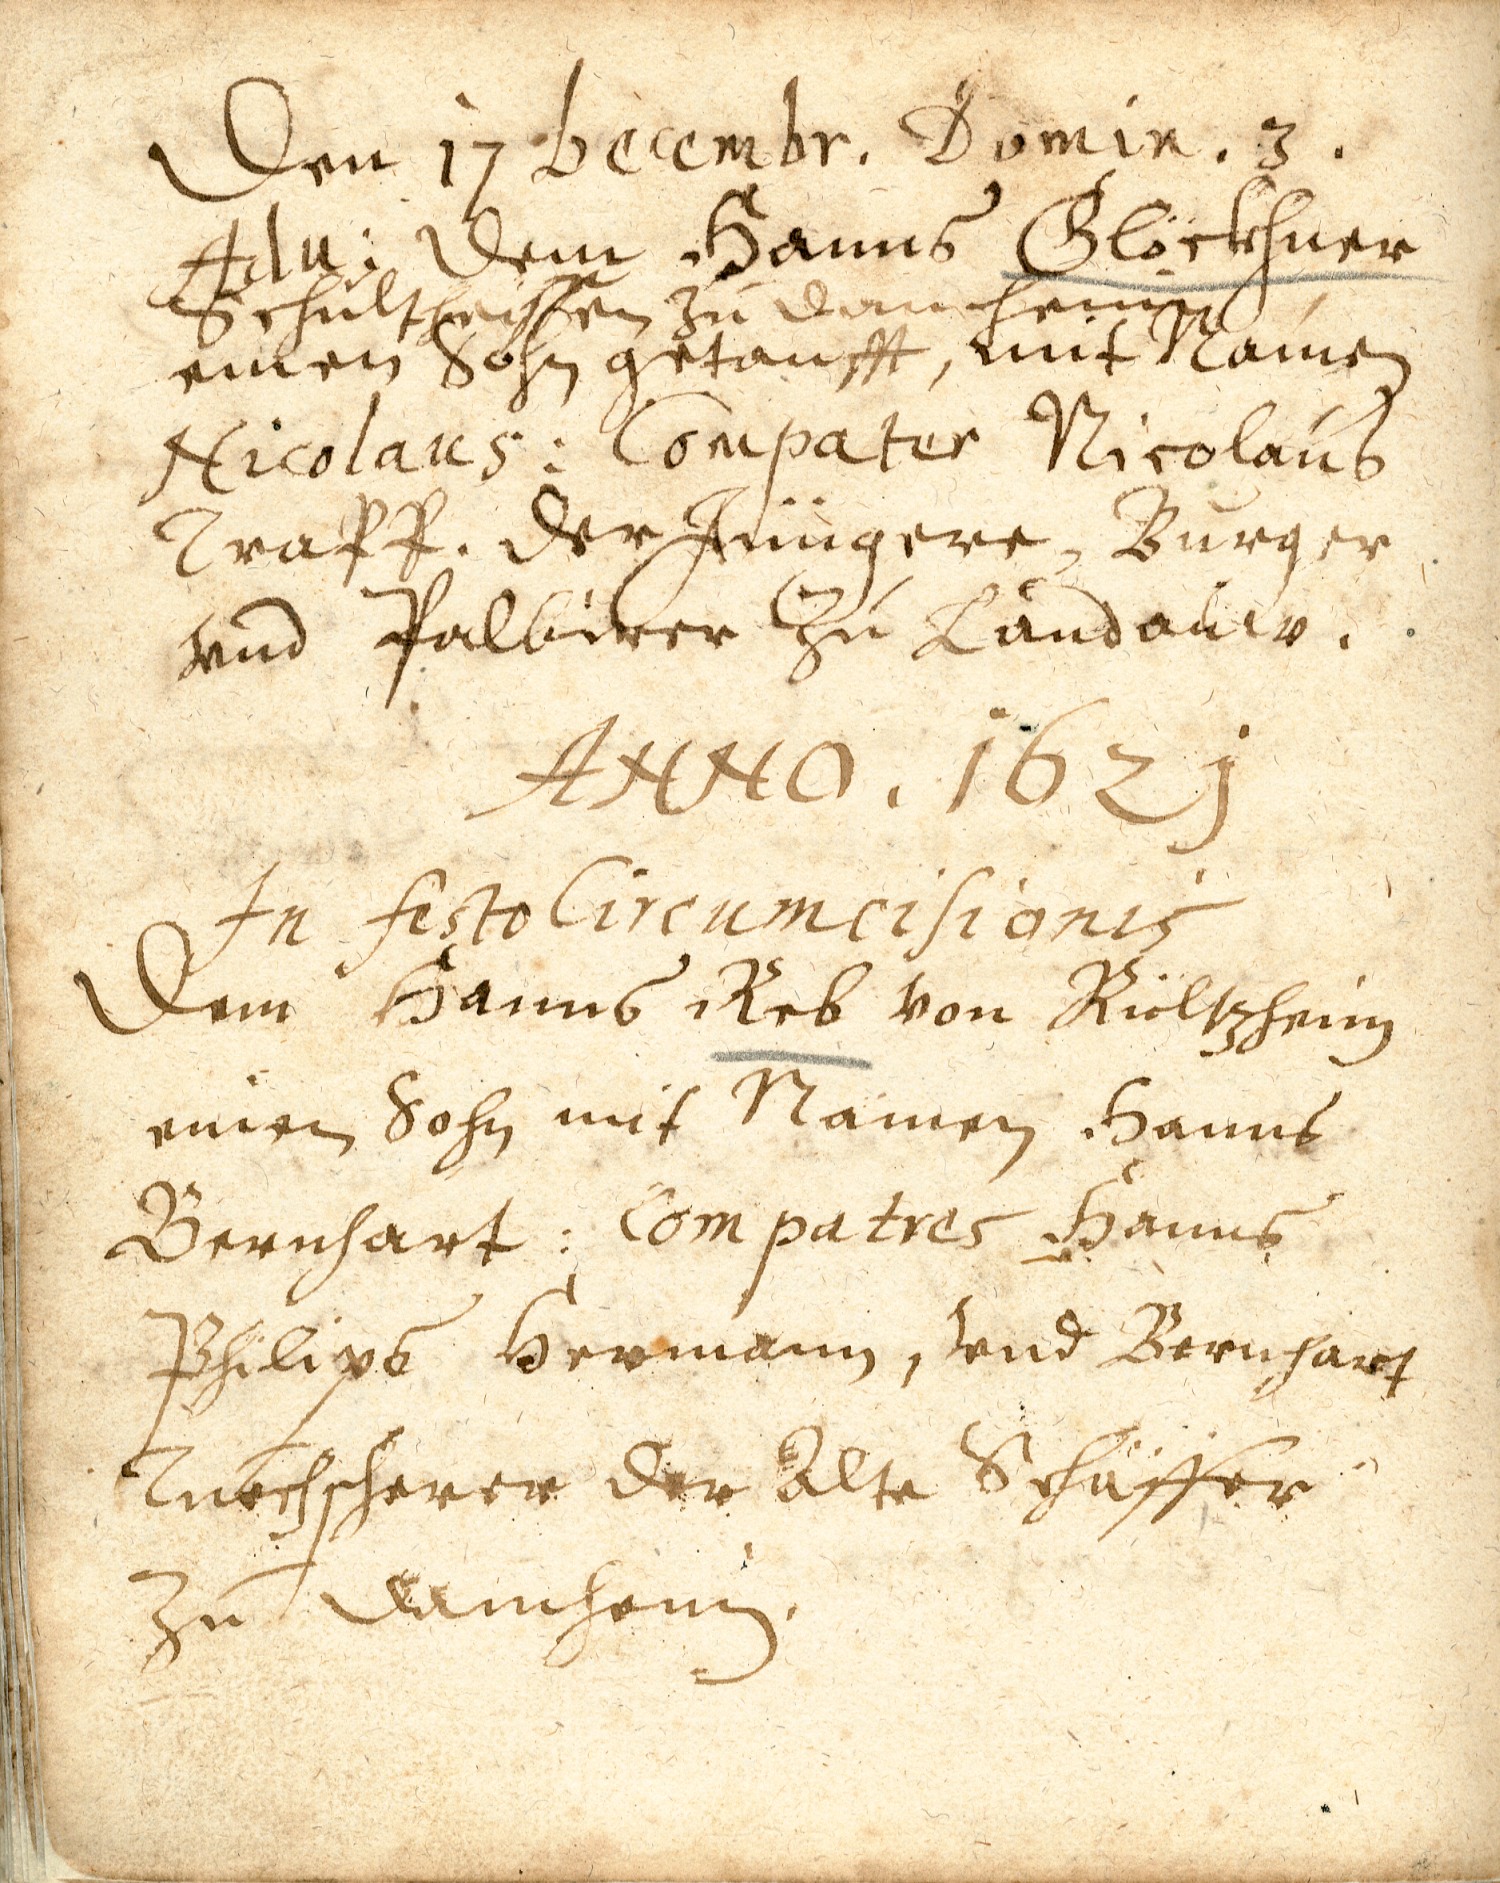 Den 17 Decembr. Domin. 3.
Adu: Dem Hanns Glöckhner
Schultheissen zu Damheim
einen Sohn getaufft, mit Namen
Nicolaus: Compater Nicolaus
Trapp. der Jüngere, Burger
vnd Palbirer Zu Landauw.
ANNO. 162j
In festo Circumcisionis
Dem Hanns Reb von Rültzheim
einen Sohn mit Namen Hanns
Bernhart: Compatres Hanns
Philips Hermann, vnd Bernhart
Tuochscherer der Alte Schäffer
Zu Damheim.